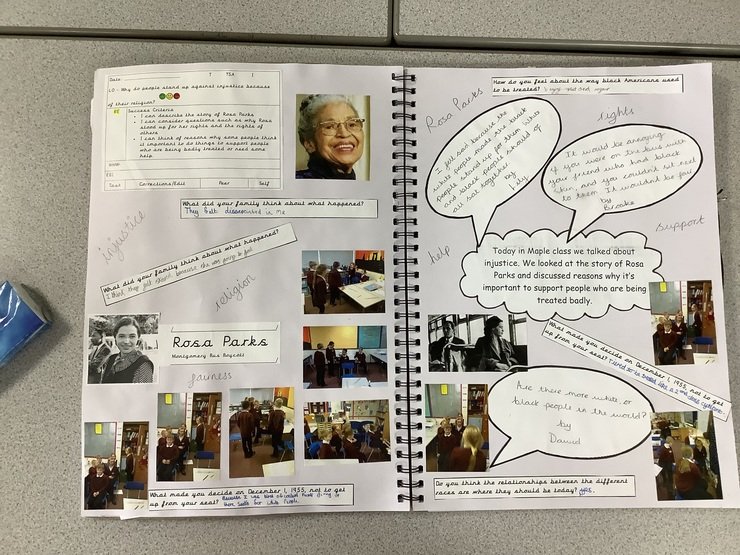 Date
T
TSA
I
LO - Why do people stand up against injustice because
of their religion?
Success Criteria
• I can describe the story of Rosa Parks
• I can consider questions such as why Rosa
stood up for her rights and the rights of
others
• I can think of reasons why some people think
it important to do things to support people
who are being badly treated or need some
help.
Corrections/Edit
Peer
Self
What did your family think about what happened?
They felt disappointed in me
injustice
What did your family think about what happened?
I think they felt because she was going to jail
religion
Rosa Parks
Montgomery Bus Boycott
fairness
What made you decide on December 1, 1955, not to get
up from your seat? Because I was tired of
there seats for white People.
How do you feel about the way black Americans used
to be treated? sad
Rosa Parks
rights
I felt sad because the
white people made the black
people stand up for them
and black people should of
all sat together
by
Lily
It would be annoying
if you were on the bus with
your friend who had black
skin, and you couldn't sit next
to them. It wouldn't be fair
by
Brooke
help
support
Today in Maple class we talked about
injustice. We looked at the story of Rosa
Parks and discussed reasons why it's
important to support people who are being
treated badly.
What made you decide on December 1, 1955, not to get
up from your seat? tired being like a 2nd class citizen.
Are there more white or
black people in the world?
by
Dawid
Do you think the relationships between the different
races are where they should be today? yes.